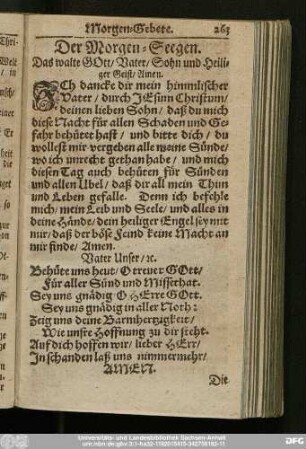 Morgen-Gebete. 263
Der Morgen-Seegen.
Das walte GOtt/ Vater/ Sohn und Heili-
ger Geist/ Amen.
ICh dancke dir mein himmlischer
Vater/ durch JEsum Christum/
deinen lieben Sohn/ daß du mich
diese Nacht für allen Schaden und Ge-
fahr behütet hast/ und bitte dich/ du
wollest mir vergeben alle meine Sünde/
wo ich unrecht gethan habe/ und mich
diesen Tag auch behüten für Sünden
und allen Ubel/ daß dir all mein Thun
und Leben gefalle. Denn ich befehle
mich/ mein Leib und Seele/ und alles in
deine Hände/ dein heiliger Engel sey mit
mir/ daß der böse Feind keine Macht an
mir finde/ Amen.
Vater Unser/ ꝛc.
Behüte uns heut/ O treuer GOtt/
Für aller Sünd und Missethat.
Sey uns gnädig O HErre GOtt.
Sey uns gnädig in aller Noth:
Zeig uns deine Barmhertzigkeit/
Wie unsre Hoffnung zu dir steht.
Auf dich hoffen wir/ lieber HErr/
In schanden laß uns nimmermehr/
AMEN.
Die
Universitäts- und Landesbibliothek Sachsen-Anhalt